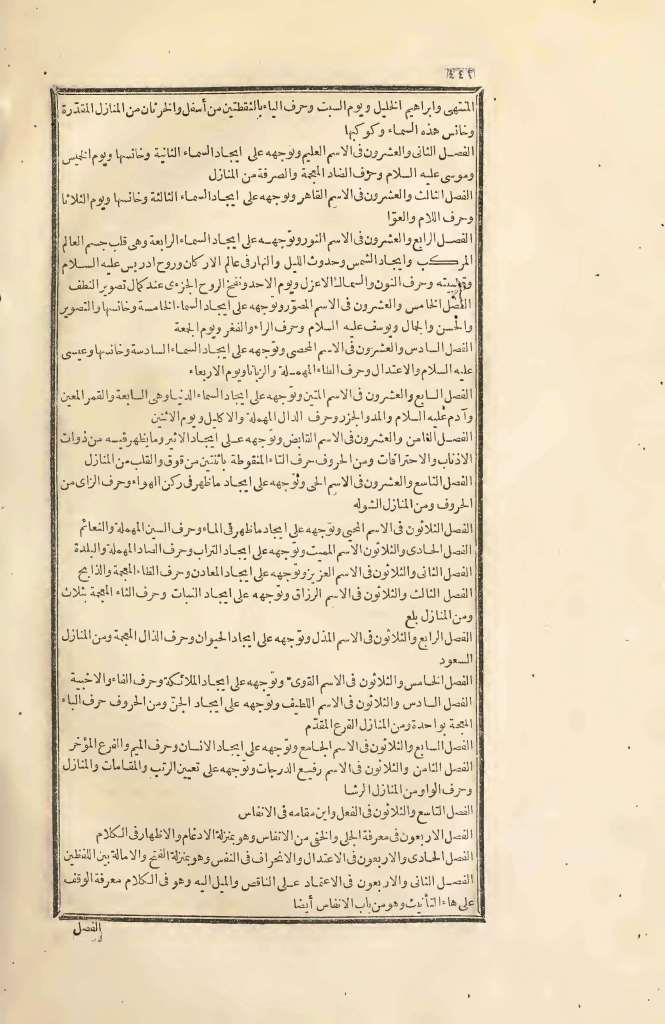 ٤٤٢
المنتهى وابراهيم الخليل ويوم السبت وحرف الياء بالنقطتين من أسفل والخرتان من المنازل المقدّرة
وخانس هذه السماء وكوكبها
الفصل الثانى والعشرون فى الاسم العليم وتوجهه على ايجاد السماء الثانية وخانسها ويوم الخيس
وموسى عليه السلام وحرف الضاد المجمة والصرفة من المنازل
الفصل الثالث والعشرون فى الاسم القاهر وتوجهه على ايجاد السماء الثالثة وخانسها ويوم الثلاثا
وحرف اللام والعوّا
الفصل الرابع والعشرون فى الاسم النور وتوجهه على ايجاد السماء الرابعة وهى قلب جسم العالم
المركب وايجاد الشمس وحدوث الليل والنهار فى عالم الاركان وروح ادريس عليه السلام
وحرف النون والسماك الاعزل ويوم الاحد ونفخ الروح الجزءى عند كمال تصوير النطف
الفصل الخامس والعشرون فى الاسم المصوّر وتوجهه على ايجاد السماء الخامسة وخانسها والتصوير
والحسن والجمال ويوسف عليه السلام وحرف الراء والغفر ويوم الجمعة
الفصل السادس والعشرون فى الاسم المحصى وتوجهه على ايجاد السماء السادسة وخانسها وعيسى
عليه السلام والاعتدال وحرف الطاء المهملة والزبانا ويوم الاربعاء
الفصل السابع والعشرون فى الاسم المتين وتوجهه على ايجاد السماء الدنيا وهى السابعة والقمر المعين
وآدم عليه السلام والمد والجزر وحرف الدال المهملة والاكليل ويوم الاثنين
الفصل الثامن والعشرون فى الاسم القابض وتوجهه على ايجاد الاثير وما يظهر فيه من ذوات
الاذناب والاحتراقات ومن الحروف حرف التاء المنقوطة باثنتين من فوق والقلب من المنازل
الفصل التاسع والعشرون فى الاسم الحى وتوجهه على ايجاد ما ظهر فى ركن الهواء وحرف الزاى من
الحروف ومن المنازل الشوله
الفصل الثلاثون فى الاسم المحيى وتوجهه على ايجاد ما ظهر فى الماء وحرف السين المهملة والنعائم
الفصل الحادى والثلاثون الاسم المميت وتوجهه على ايجاد التراب وحرف الصاد المهملة والبلدة
الفصل الثانى والثلاثون الاسم العزيز وتوجهه على ايجاد المعادن وحرف الظاء المعجمة والذابح
الفصل الثالث والثلاثون فى الاسم الرزاق وتوجهه على ايجاد النبات وحرف الثاء المعجمة بثلاث
ومن المنازل بلع
الفصل الرابع والثلاثون فى الاسم المذل وتوجهه على ايجاد الحيوان وحرف الذال المعجمة ومن المنازل
السعود
الفصل الخامس والثلاثون فى الاسم القوى وتوجهه على ايجاد الملائكة وحرف الفاء والاخبية
الفصل السادس والثلاثون فى الاسم اللطيف وتوجهه على ايجاد الجنّ ومن الحروف حرف الباء
المعجمة بواحدة ومن المنازل الفرع المقدّم
الفصل السابع والثلاثون فى الاسم الجامع وتوجهه على ايجاد الانسان وحرف الميم والفرع المؤخر
الفصل الثامن والثلاثون فى الاسم رفيع الدرجات وتوجهه على تعيين الرتب والمقامات والمنازل
وحرف الواو ومن المنازل الرشا
الفصل التاسع والثلاثون فى الفعل واين مقامه فى الانفاس
الفصل الاربعون فى معرفة الجلى والخفى من الانفاس وهو بمنزلة الادغام والاظهار فى الكلام
الفصل الحادى والاربعون فى الاعتدال والانحراف فى النفس وهو بمنزلة الفتح والامالة بين اللفظين
الفصل الثانى والاربعون فى الاعتماد على الناقص والميل اليه وهو فى الكلام معرفة الوقف
على هاء التأنيث وهو من باب الانفاس أيضا
الفصل